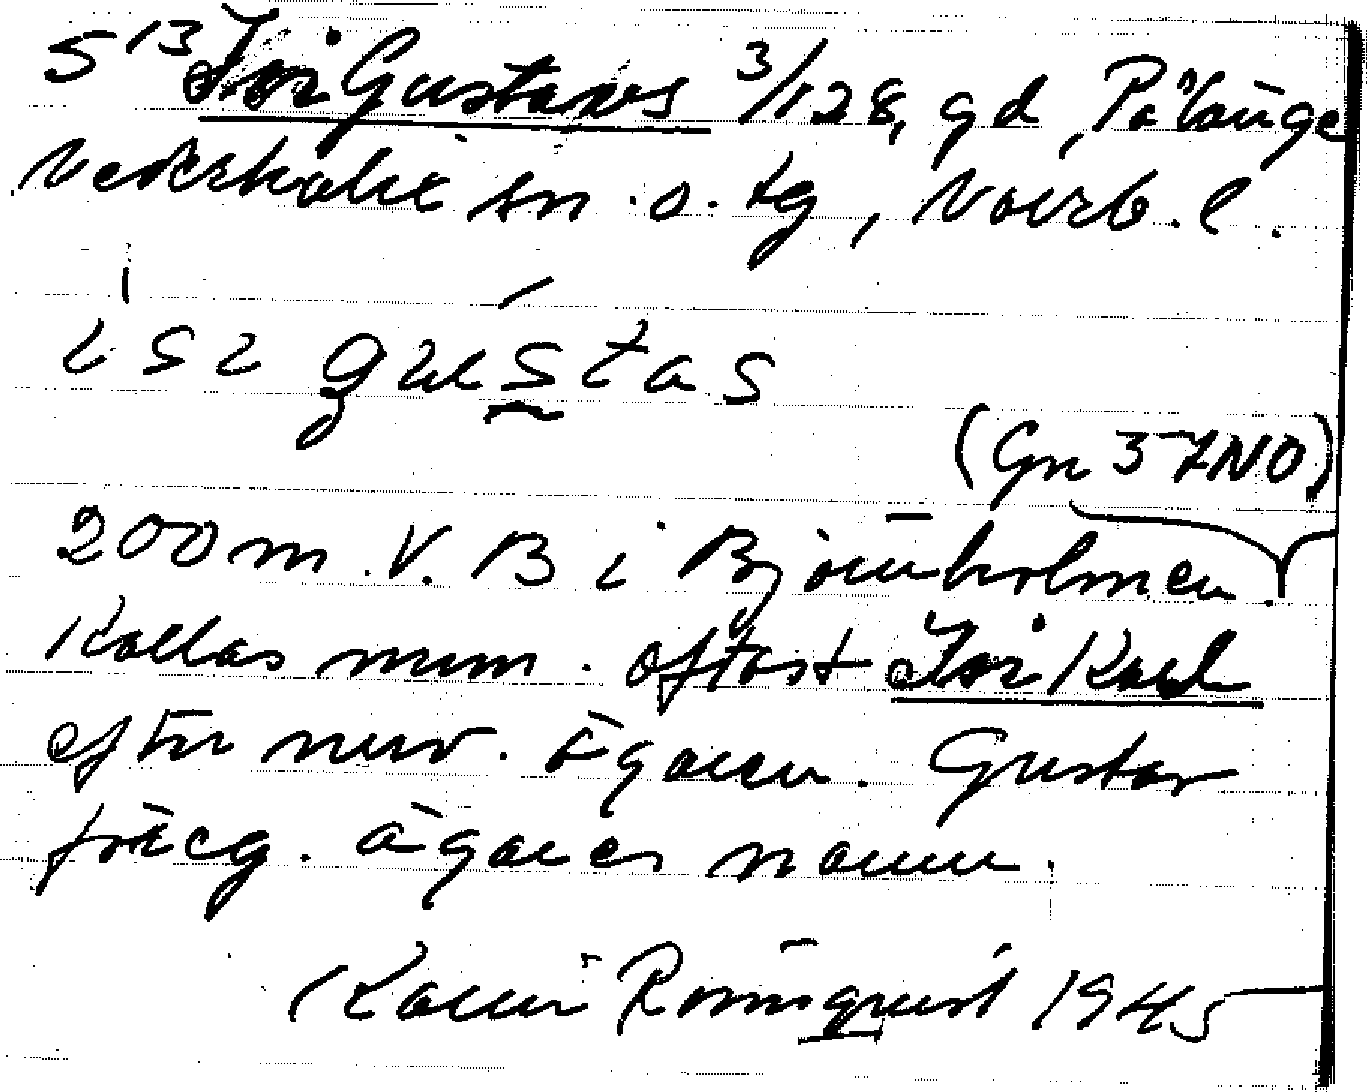 5¹³ Isi Gustavs 3/128, gd, Pålänge
Nederkalix sn. o. tg, Norrb. l.
isi gustas
(Gn 37NO)
200 m. V. B i Björnholmen.
Kallas num. oftast Isi Karl
efter nuv. ägaren. Gustav
föreg. ägares namn.
Karin Rönnquist 1945